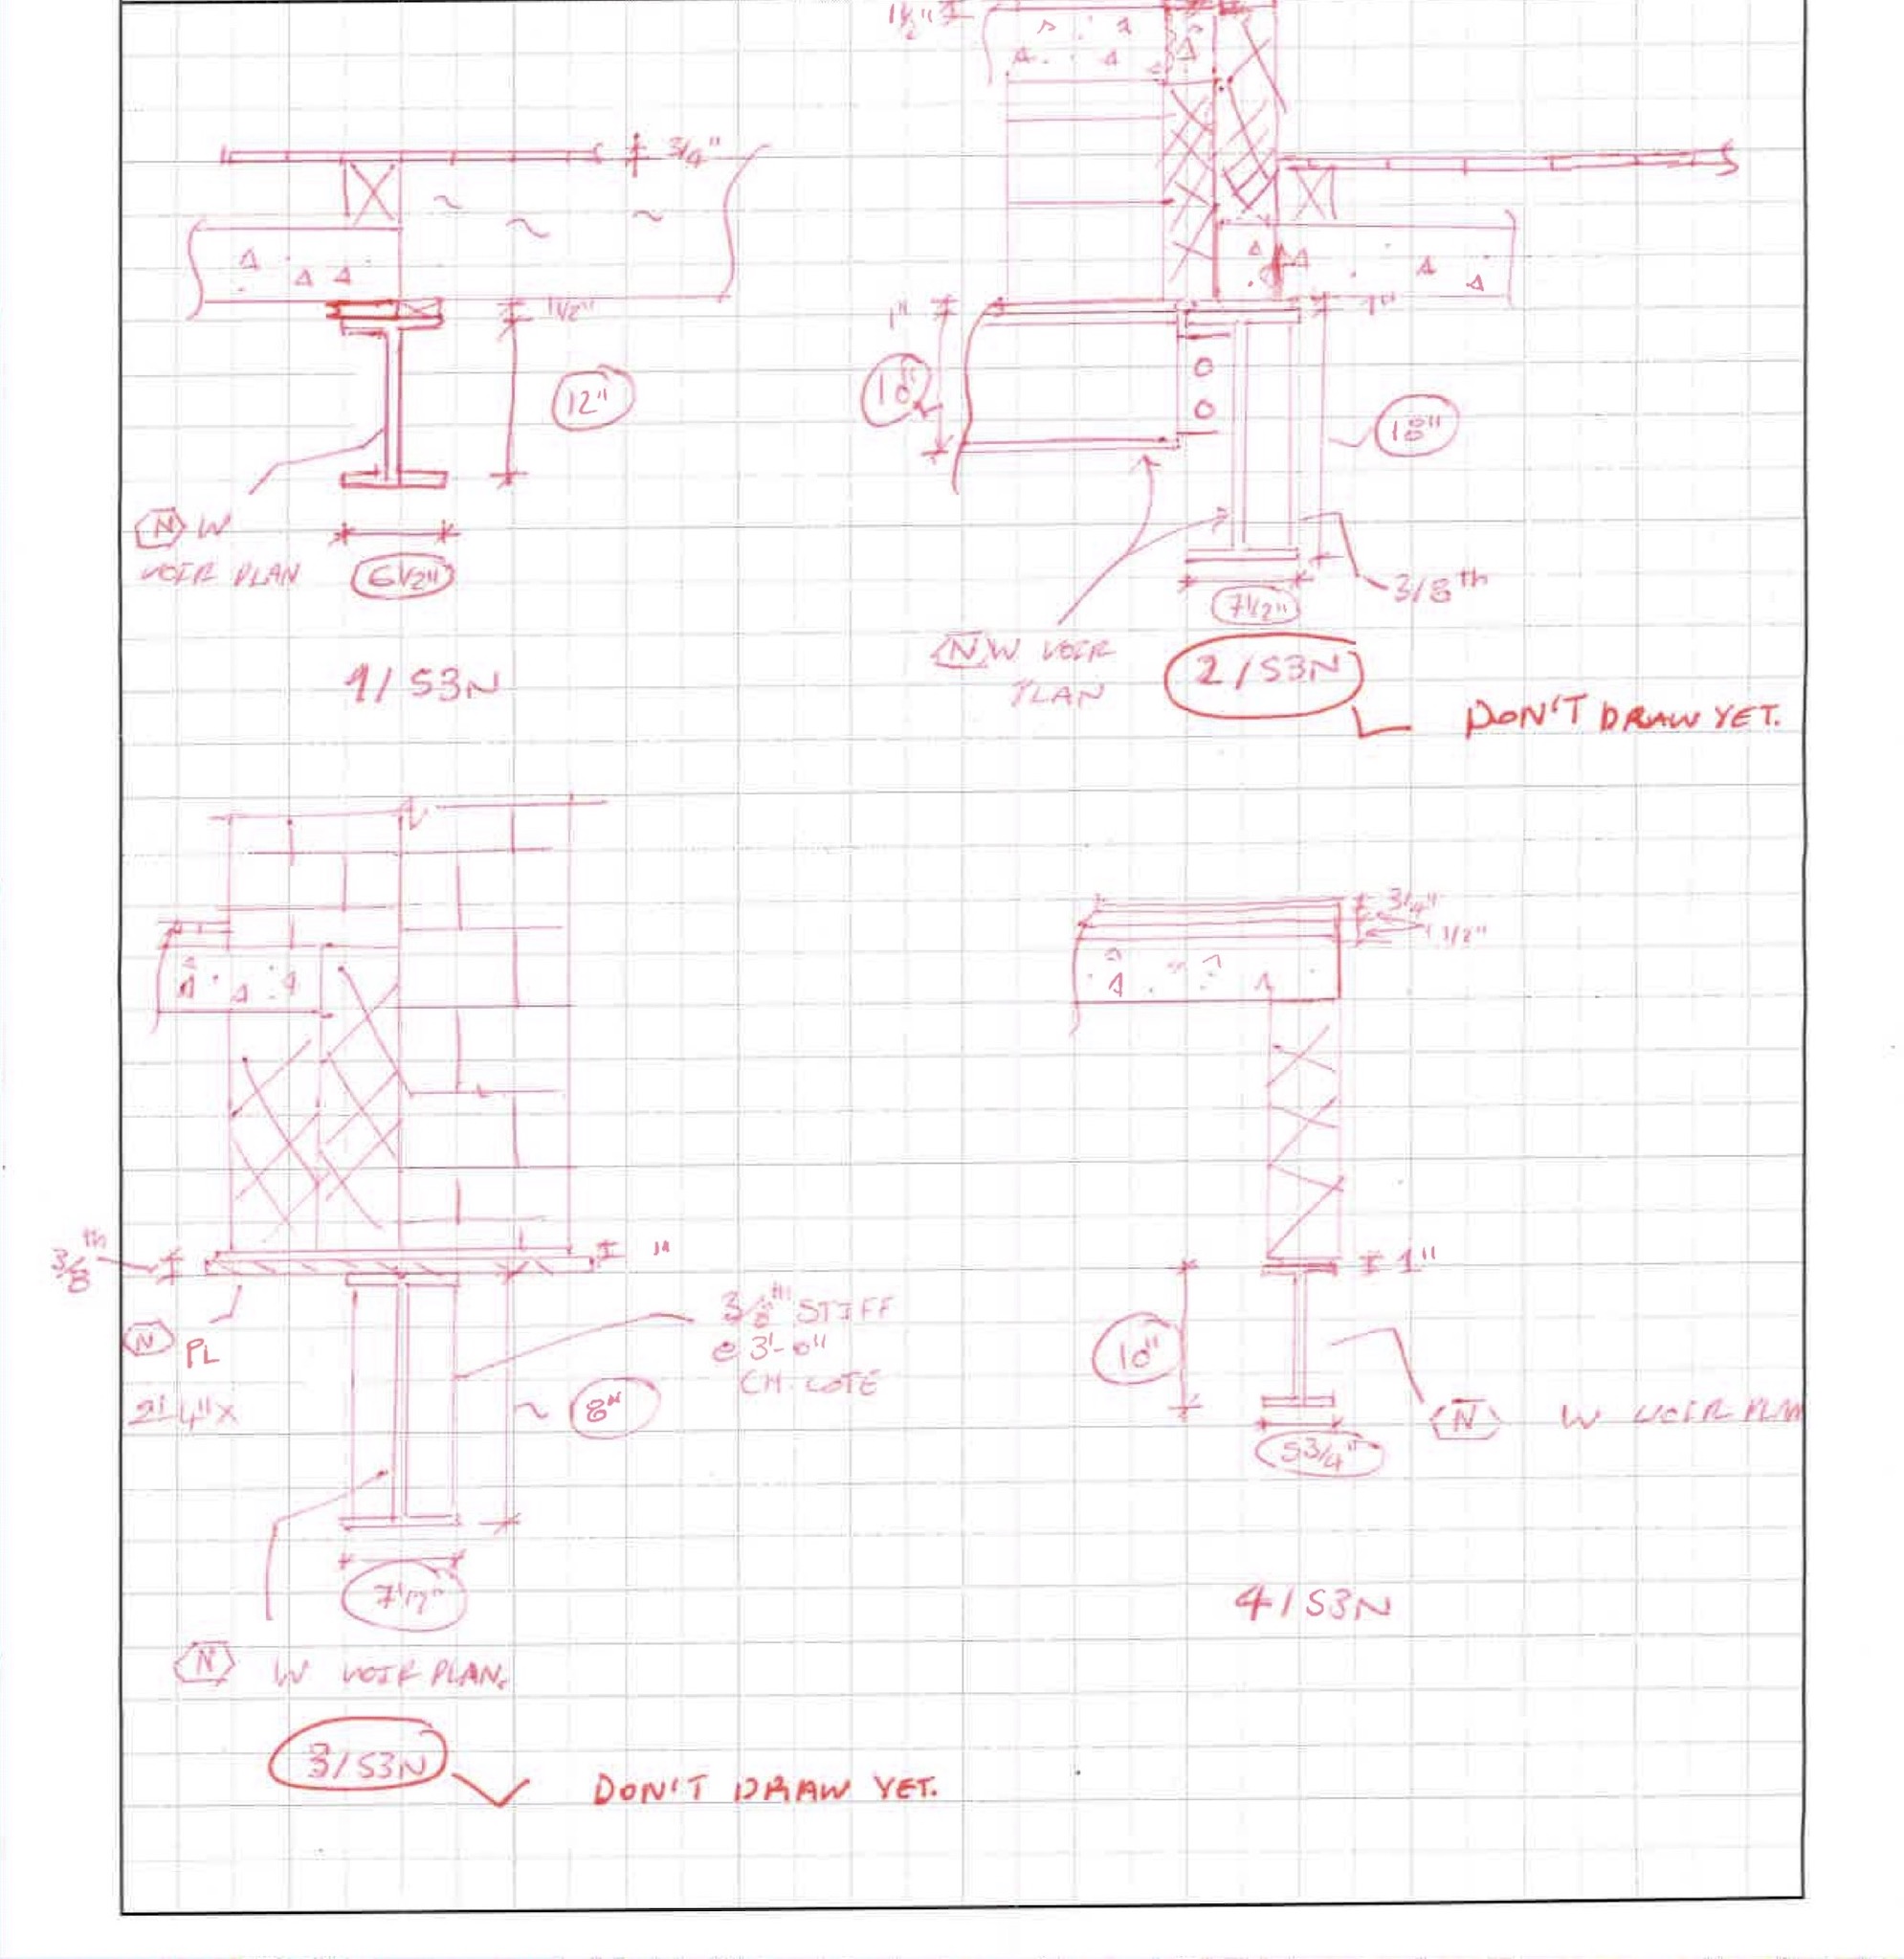 1½"
3/4"
1½"
12"
N W
VOIR PLAN
6½"
1/S3N
1"
1"
10"
3/8 th
7½"
N W VOIR
PLAN
2/S3N
DON'T DRAW YET.
3/8 th
1"
N PL
2'-4" x
3/8 th STIFF
@ 3'-0"
CH. COTE
8"
7½"
N W VOIR PLAN.
3/S3N
DON'T DRAW YET.
3/4"
1 1/2"
1"
10"
N W VOIR PLAN
5 3/4"
4/S3N